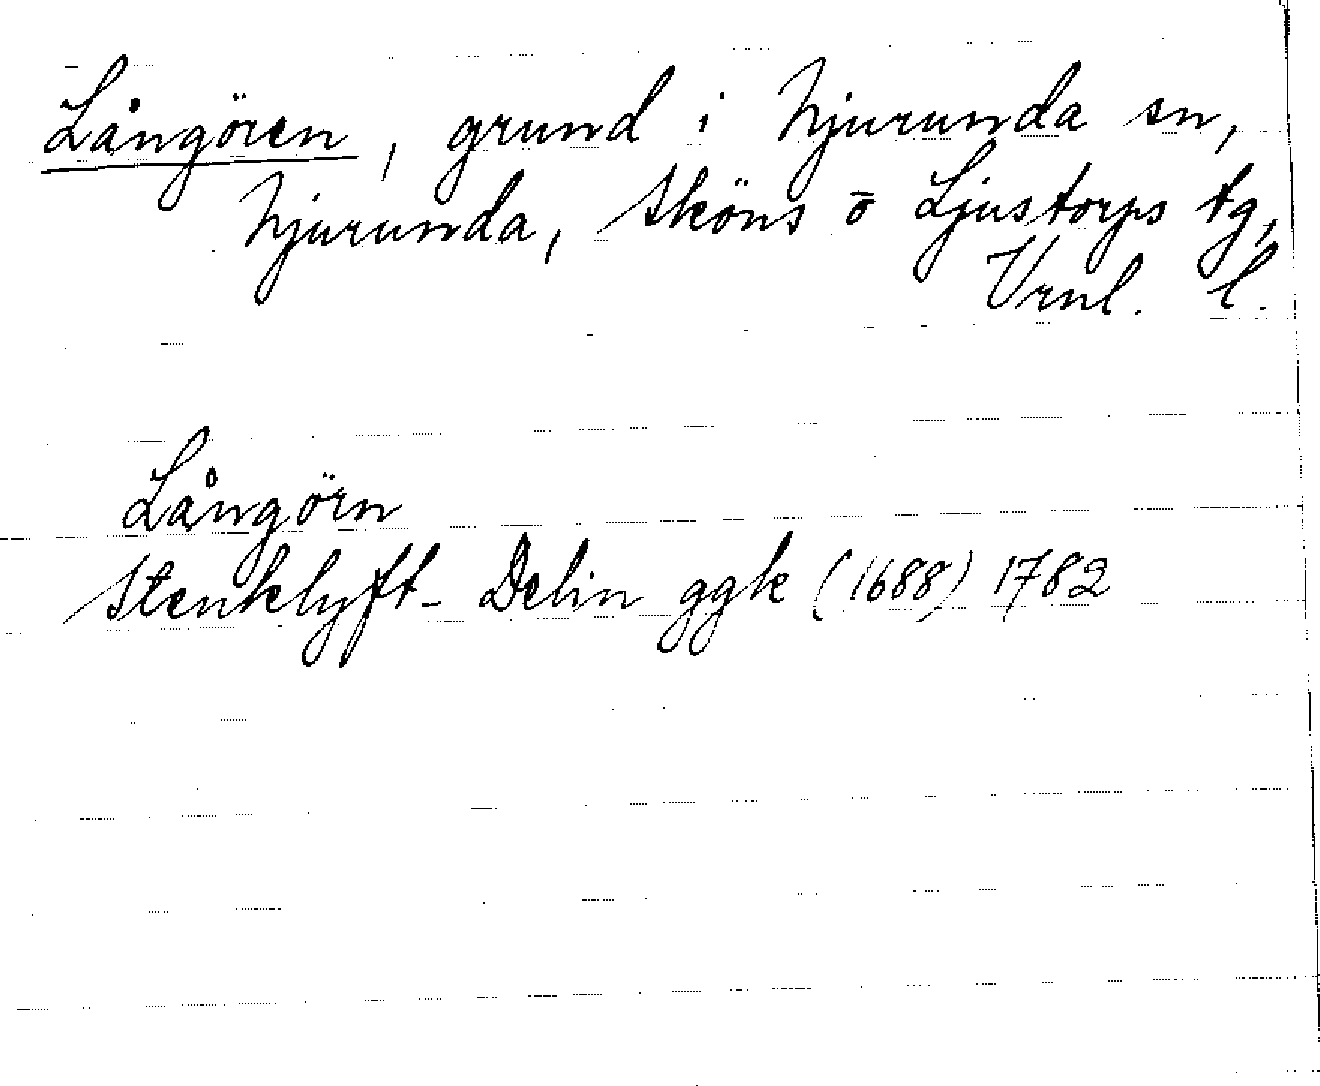 Långören, grund i Njurunda sn,
Njurunda, Sköns o Ljustorps tg,
Vrnl. l.
Långörn
Stenklyft-Delin ggk (1688) 1782